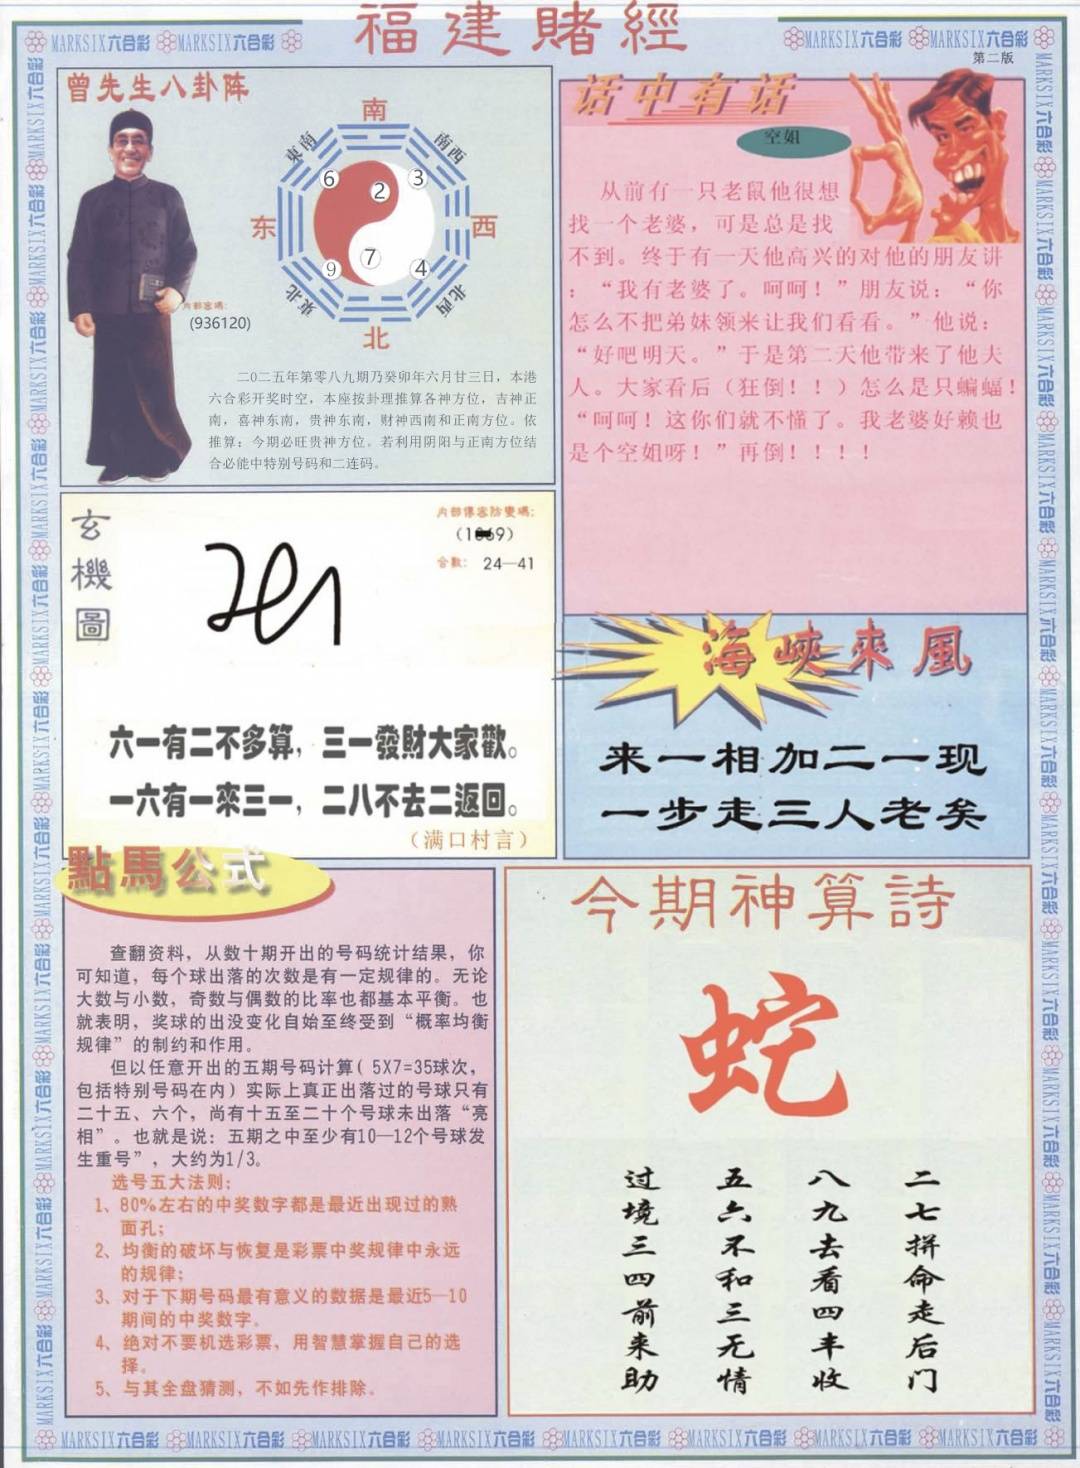 福建賭經
MARKSIX六合彩 MARKSIX六合彩
MARKSIX六合彩 MARKSIX六合彩
第二版
曾先生八卦阵
南
東南
南西
6
2
3
东
西
9
7
4
東北
北西
北
内部密碼:
(936120)
二0二五年第零八九期乃癸卯年六月廿三日，本港
六合彩开奖时空，本座按卦理推算各神方位，吉神正
南，喜神东南，贵神东南，财神西南和正南方位。依
推算：今期必旺贵神方位。若利用阴阳与正南方位结
合必能中特别号码和二连码。
话中有话
空姐
从前有一只老鼠他很想
找一个老婆，可是总是找
不到。终于有一天他高兴的对他的朋友讲
：“我有老婆了。呵呵！”朋友说：“你
怎么不把弟妹领来让我们看看。”他说：
“好吧明天。”于是第二天他带来了他夫
人。大家看后（狂倒！！）怎么是只蝙蝠！
“呵呵！这你们就不懂了。我老婆好赖也
是个空姐呀！”再倒！！！！
玄機圖
内部傳密防變碼:
合數: 24—41
六一有二不多算，三一發財大家歡。
一六有一來三一，二八不去二返回。
（满口村言）
海峽來風
来一相加二一现
一步走三人老矣
點馬公式
查翻资料，从数十期开出的号码统计结果，你
可知道，每个球出落的次数是有一定规律的。无论
大数与小数，奇数与偶数的比率也都基本平衡。也
就表明，奖球的出没变化自始至终受到“概率均衡
规律”的制约和作用。
但以任意开出的五期号码计算( 5X7=35球次，
包括特别号码在内）实际上真正出落过的号球只有
二十五、六个，尚有十五至二十个号球未出落“亮
相”。也就是说：五期之中至少有10—12个号球发
生重号”，大约为1/3。
选号五大法则：
1、80%左右的中奖数字都是最近出现过的熟
面孔；
2、均衡的破坏与恢复是彩票中奖规律中永远
的规律；
3、对于下期号码最有意义的数据是最近5—10
期间的中奖数字。
4、绝对不要机选彩票，用智慧掌握自己的选
择。
5、与其全盘猜测，不如先作排除。
今期神算詩
蛇
二七拼命走后门
八九去看四丰收
五六不和三无情
过境三四前来助
MARKSIX六合彩 MARKSIX六合彩 MARKSIX六合彩 MARKSIX六合彩 MARKSIX六合彩 MARKSIX六合彩 MARKSIX六合彩 MARKSIX六合彩